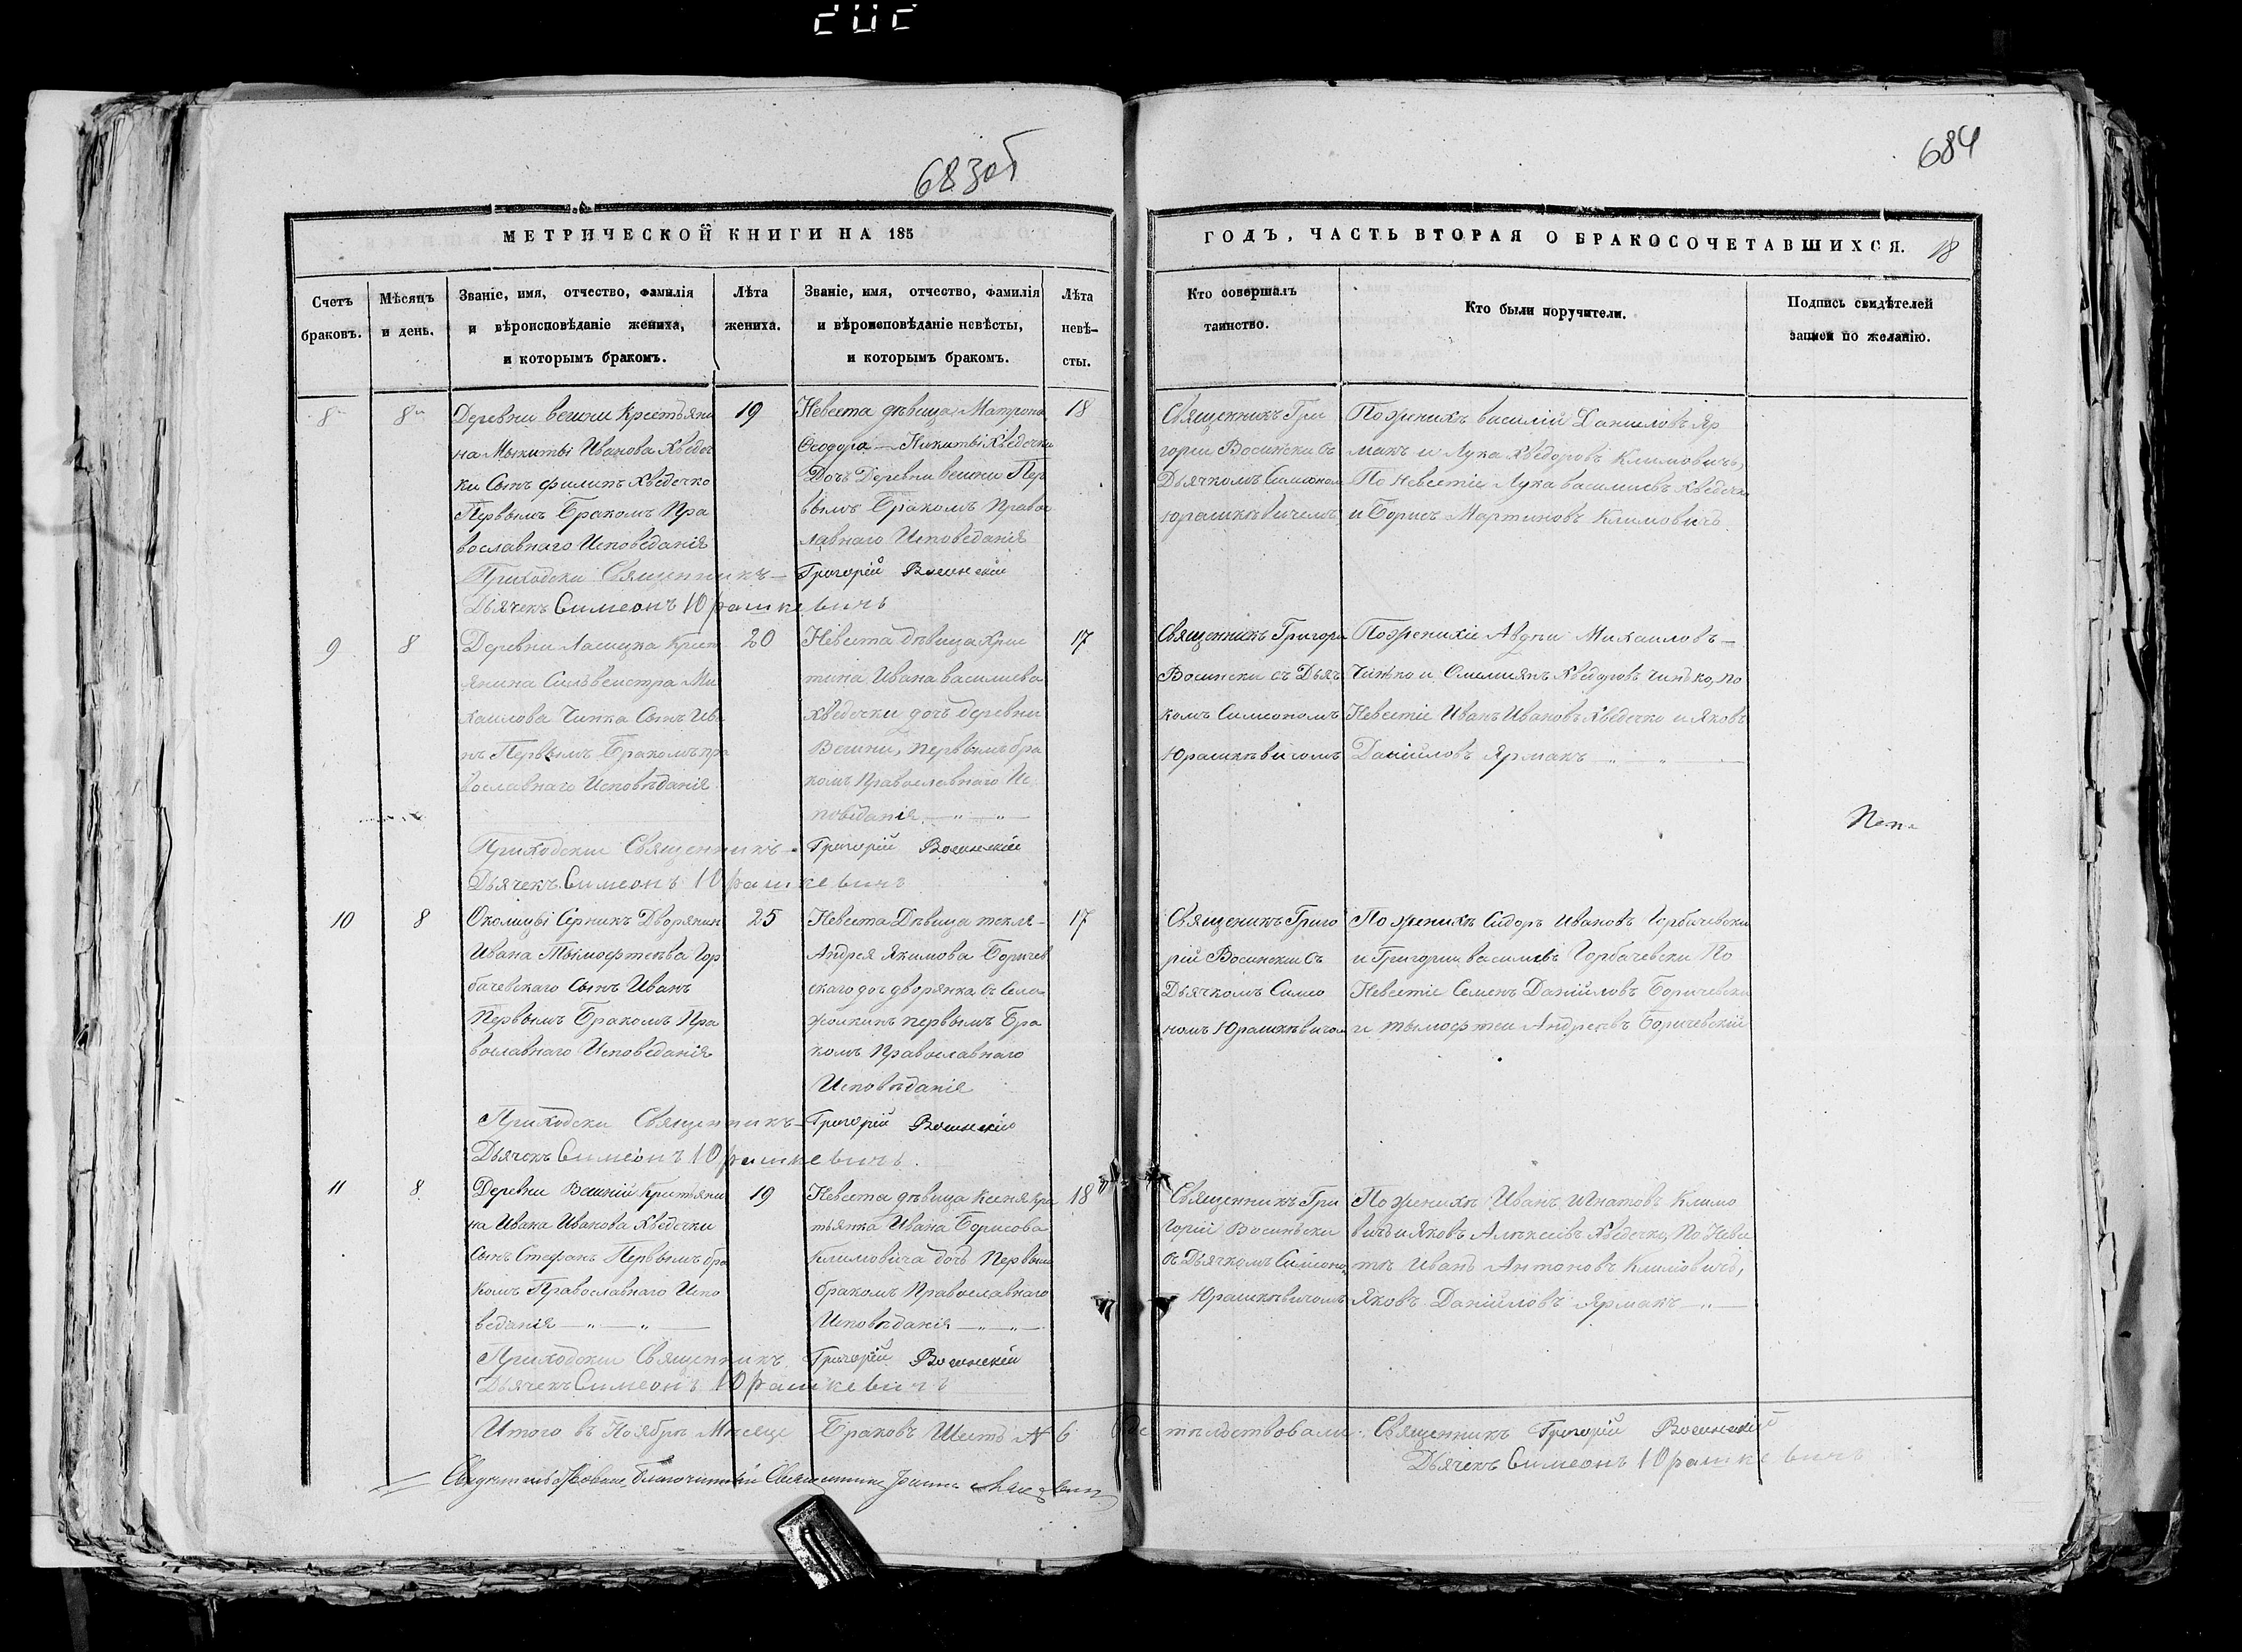 683об
684
МЕТРИЧЕСКОЙ КНИГИ НА 185
ГОДЪ, ЧАСТЬ ВТОРАЯ О БРАКОСОЧЕТАВШИХСЯ. 18
Счетъ
браковъ.
Мѣсяцъ
и день.
Званіе, имя, отчество, фамилія
и вѣроисповѣданіе жениха,
и которымъ бракомъ.
Лѣта
жениха.
Званіе, имя, отчество, фамилія
и вѣроисповѣданіе невѣсты,
и которымъ бракомъ.
Лѣта
невѣ-
сты.
Кто совершалъ
таинство.
Кто были поручители.
Подпись свидѣтелей
записи по желанію.
8
8
Деревни вешни Крестьяни
на Мыкиты Иванова Хведеч
ки Сынъ филипъ Хведечко
Первымъ Бракомъ Пра
вославнаго Исповеданія
19
Невеста дѣвица Матрона
Ѳеодора — Никиты Хведечки
Дочъ Деревни вешни Пер
вымъ Бракомъ Правос
лавнаго Исповеданія
18
Священникъ Гри
гори Восински съ
Дьячкомъ Симеоном
Юрашкѣвичемъ
По женихѣ василій Даниловъ Яр
макъ и Лука Хведоровъ Климовичъ,
По Невестіе Лука василиевъ Хведечко
и Борисъ Мартиновъ Климовичъ
Приходски Священникъ — Григорій Восинскій
Дьячекъ Симеонъ Юрашкевичъ
9
8
Деревни Ласицка Крест
янина Силвестра Ми
хаилова Чинка Сынъ Ива
нъ Первымъ Бракомъ пра
вославнаго Исповѣданія
20
Невеста дѣвица Хрис
тина Ивана василиева
Хведечки дочъ деревни
Вешни, первымъ бра
комъ Православнаго Ис
поведанія — „ — „ —
17
Священникъ Григори
Восински съ Дьяч
комъ Симеономъ
Юрашкѣвичомъ
По женихіе Авдѣи Михаиловъ —
Чинько и Омилиянъ Хведоровъ Чинько, по
Невестіе Иванъ Ивановъ Хведечко и Яковъ
Даніиловъ Ярмакъ — „ — „ —
Приходскіи Священникъ — Григорій Восинскій
Дьячекъ Симеонъ Юрашкевичъ
10
8
Околицы Серникъ Дворянин
Ивана Тымофтеѣва Гор
бачевскаго Сынъ Иванъ
Первымъ Бракомъ Пра
вославнаго Исповеданія
25
Невеста Дѣвица текля —
Андрея Якимова Боричев
скаго доч дворянка съ Села
первымъ Бра
комъ Православнаго
Исповѣданія
17
Священикъ Григо
рій Восинскии Съ
Дьячкомъ Симео
номъ Юрашкѣвичом
По женихѣ Сидоръ Ивановъ Горбачевски
и Григории василиевъ Горбачевски По
Невестіе Семенъ Даніиловъ Боричевски
и тымофтеи Андреевъ Боричевскій
Приходски Священникъ — Григорій Восинскій
Дьячекъ Симеонъ Юрашкевичъ
11
8
Деревни Вешній Крестьяни
на Ивана Иванова Хведечки
Сынъ Стефанъ Первымъ бра
комъ Православнаго Испо
веданія — „ — „ —
19
Невеста дѣвица Ксеня Крес
тьянка Ивана Борисова
Климовича дочъ Первым
бракомъ Православнаго
Исповѣданія — „ — „ —
18
Священникъ Гри
горій Восиньски
съ Дьячкомъ Симеоно
Юрашкѣвичомъ
По женихѣ Иванъ Игнатовъ Климо
вичъ и Яковъ Алѣксіевъ Хведечко, По Неве
стѣ Иванъ Антоновъ Климовичъ,
Яковъ Даніиловъ Ярмакъ — „ —
Приходскіи Священникъ Григорій Восинскій
Дьячекъ Симеонъ Юрашкевичъ
Итого въ Ноябрѣ Мѣсяце Браковъ Шесть № 6
Священникъ Григорій Восинскій
Дьячекъ Симеонъ Юрашкевичъ
Свидѣтельствовалъ Благочинный Священникъ